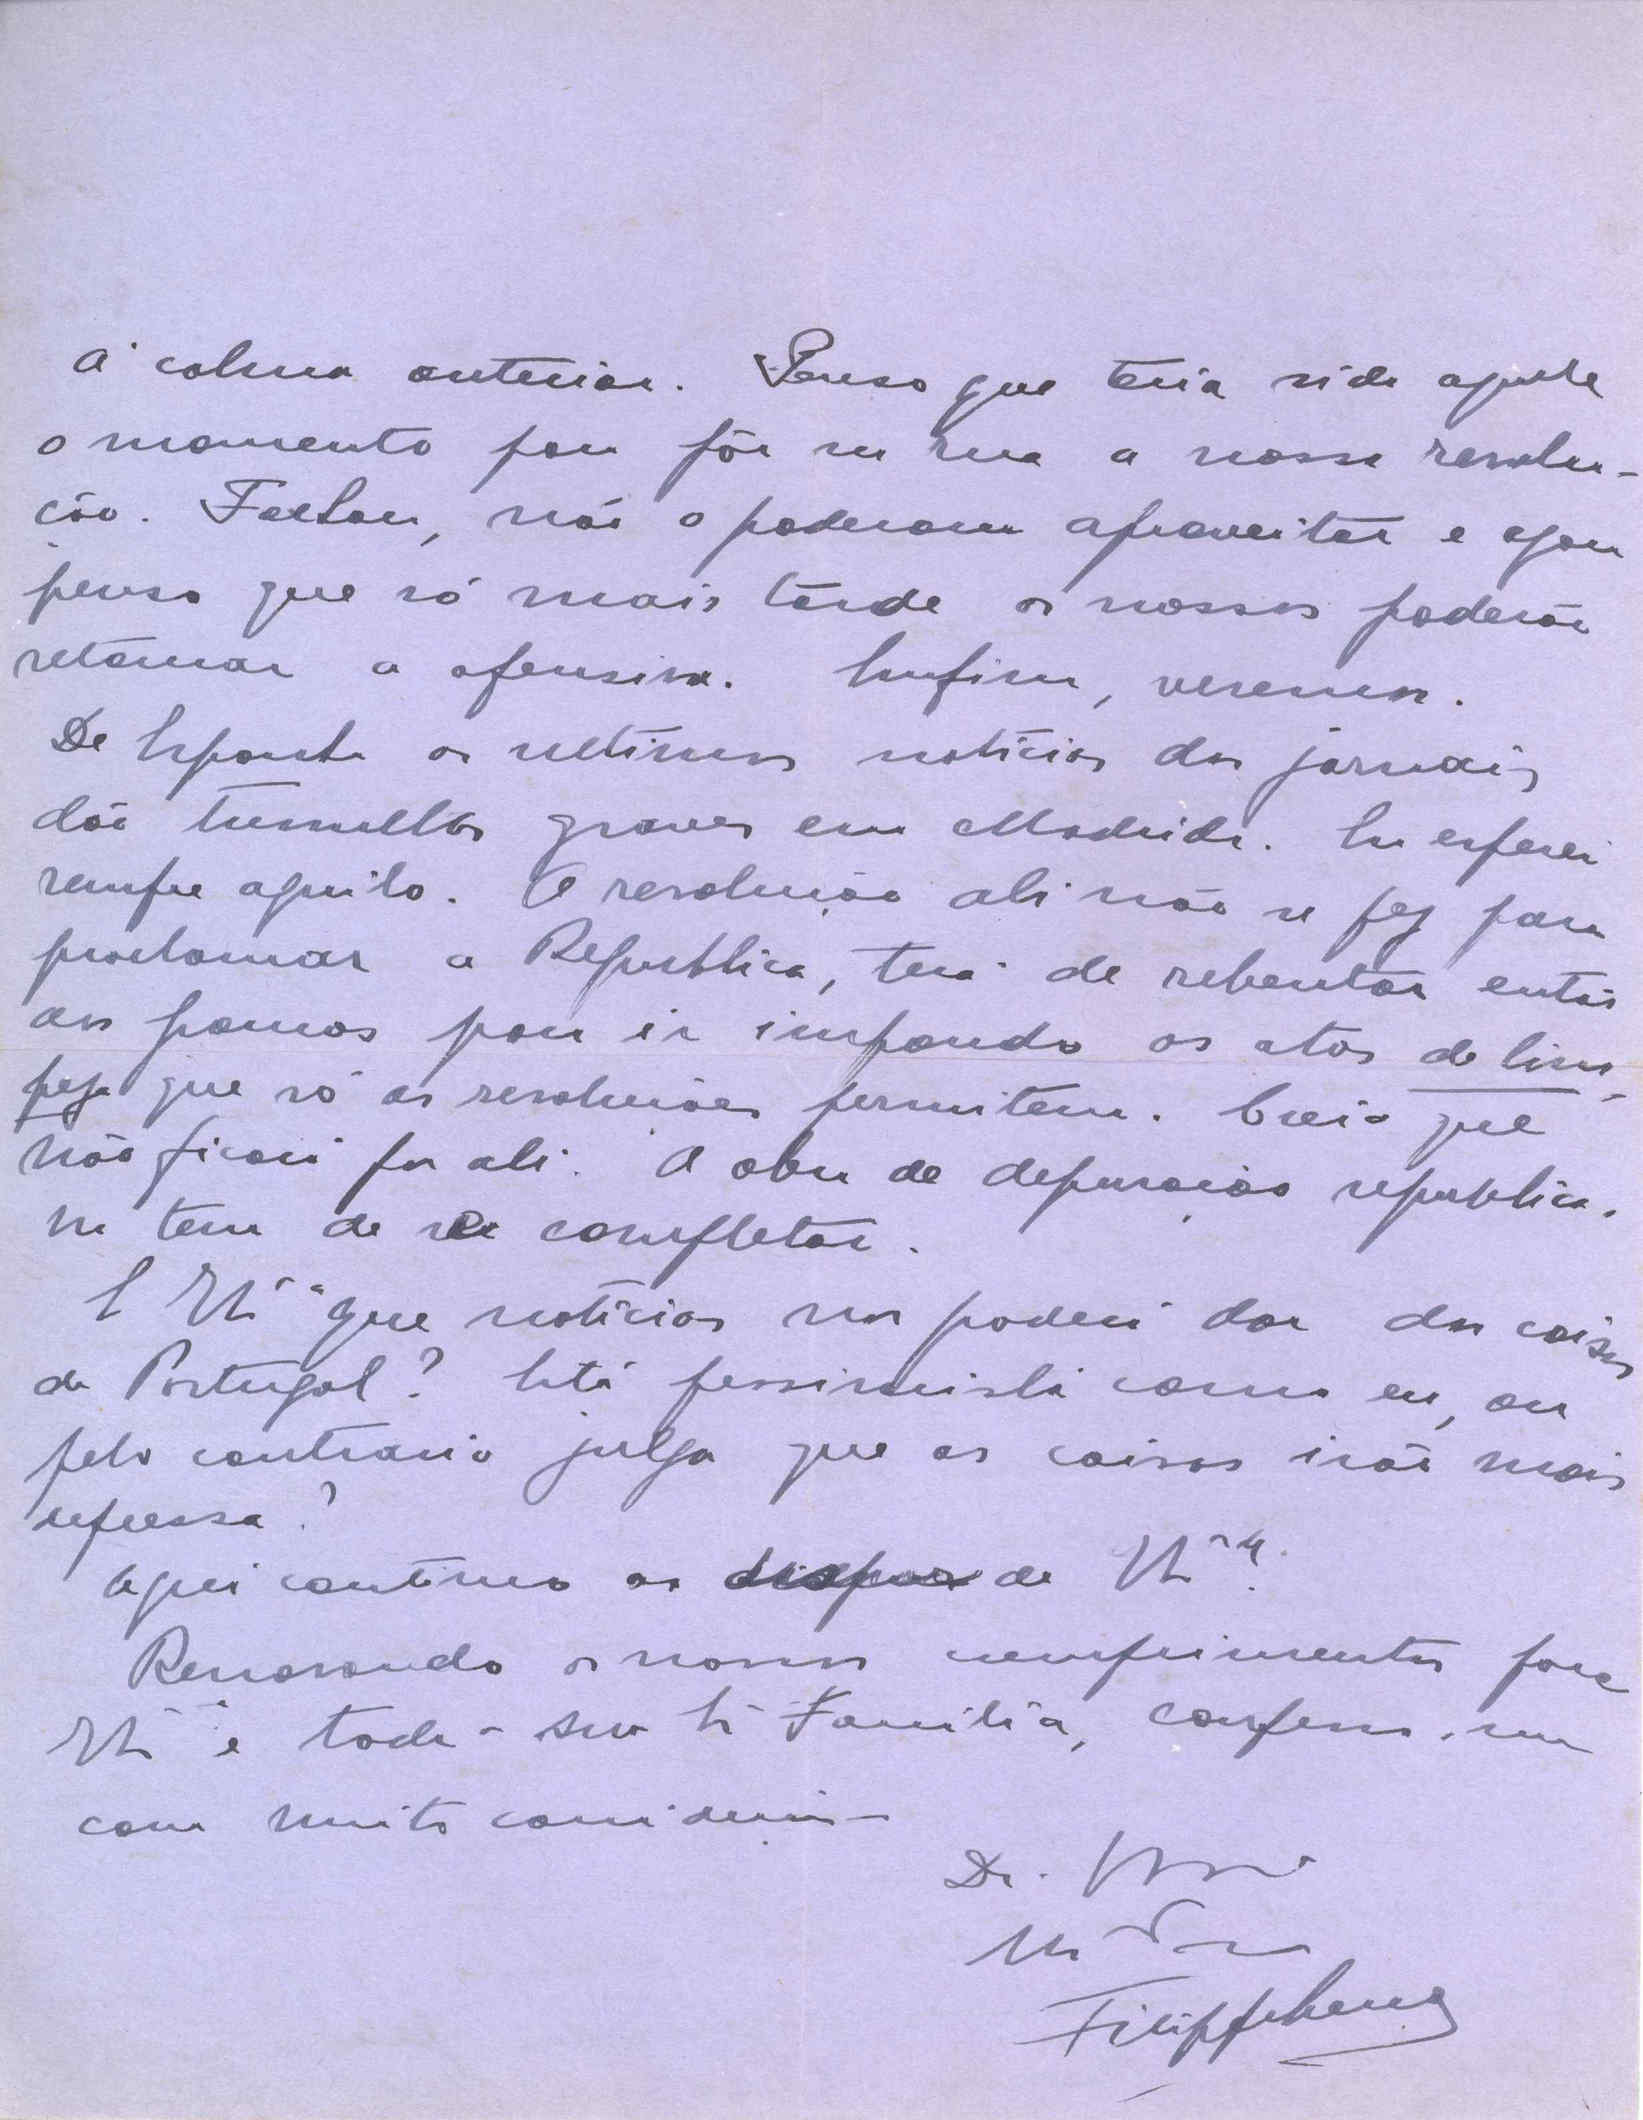 á calma anterior. Penso que teria sido aquele
o momento para pôr na rua a nossa revolu-
ção. Faltou, não o poderam aproveitar e agora
penso que só mais tarde os nossos poderão
retomar a ofensiva. Emfim, veremos.
De Espanha as ultimas notícias dos jornais
dão tumultos graves em Madrid. Eu esperei
sempre aquilo. A revolução ali não se fez para
proclamar a Republica, terá de rebentar então
aos poucos para ir impondo os atos de lim-
peza que só as revoluções permitem. Creio que
não ficará por ali. A obra de depuração republica-
na tem de se completar.
E V. que notícias nos poderá dar das coisas
de Portugal? Está pessimista como eu, ou
pelo contrario julga que as coisas irão mais
depressa?
Aqui continuo ao dispor de V.
Renovando os nossos cumprimentos para
V. e toda a sua Familia, confesso-me
com muita consideração
De V.